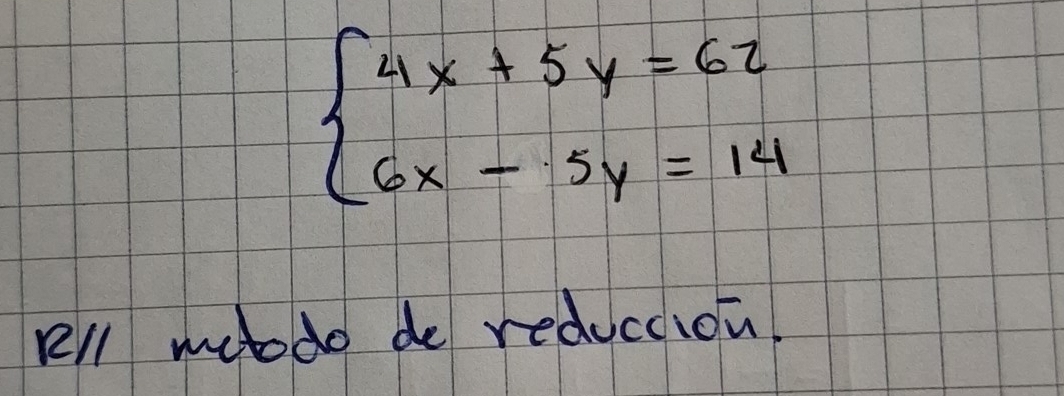 4x + 5y = 62
6x - 5y = 14
R// metodo de reducción.